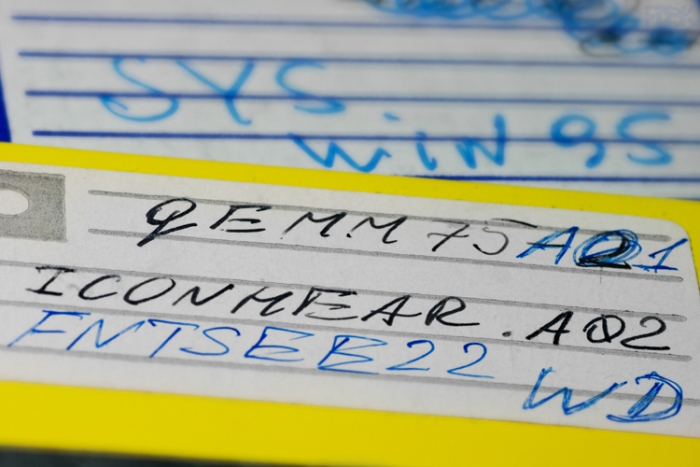 SYS
WIN 95
QEMM75 A01
ICONHEAR.A02
FNTSEE22
WD